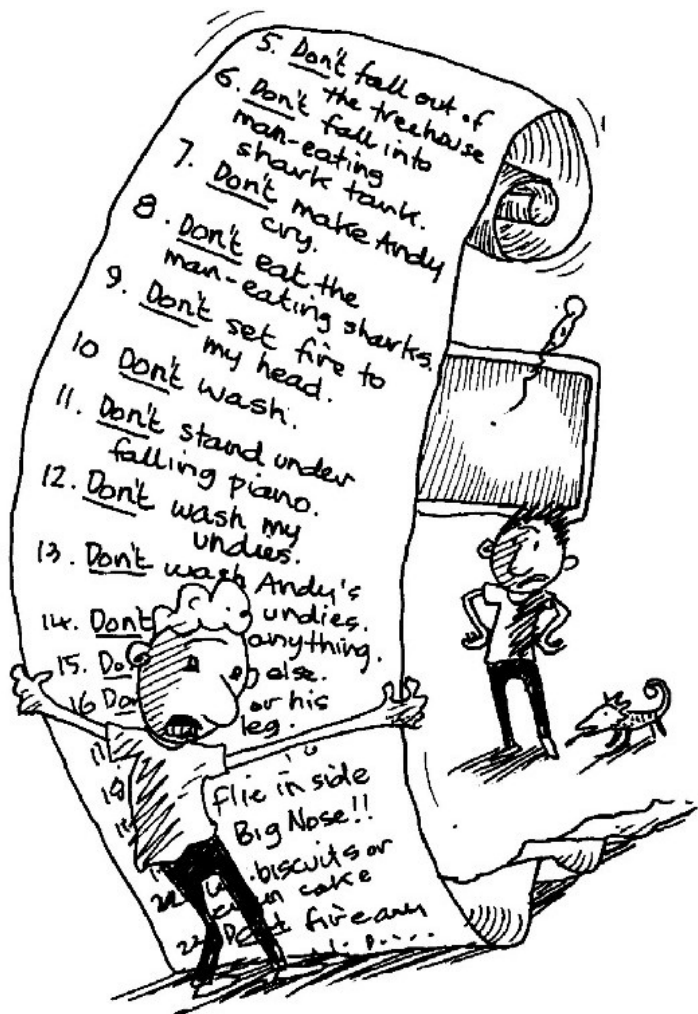 5. Don't fall out of
the treehouse
6. Don't fall into
man-eating
shark tank.
7. Don't make Andy
cry.
8. Don't eat the
man-eating sharks.
9. Don't set fire to
my head.
10 Don't wash.
11. Don't stand under
falling piano.
12. Don't wash my
undies.
13. Don't wash Andy's
undies.
14. Don't anything.
15. else.
16 or his
leg.
in side
Big Nose!!
biscuits or
cake
fire